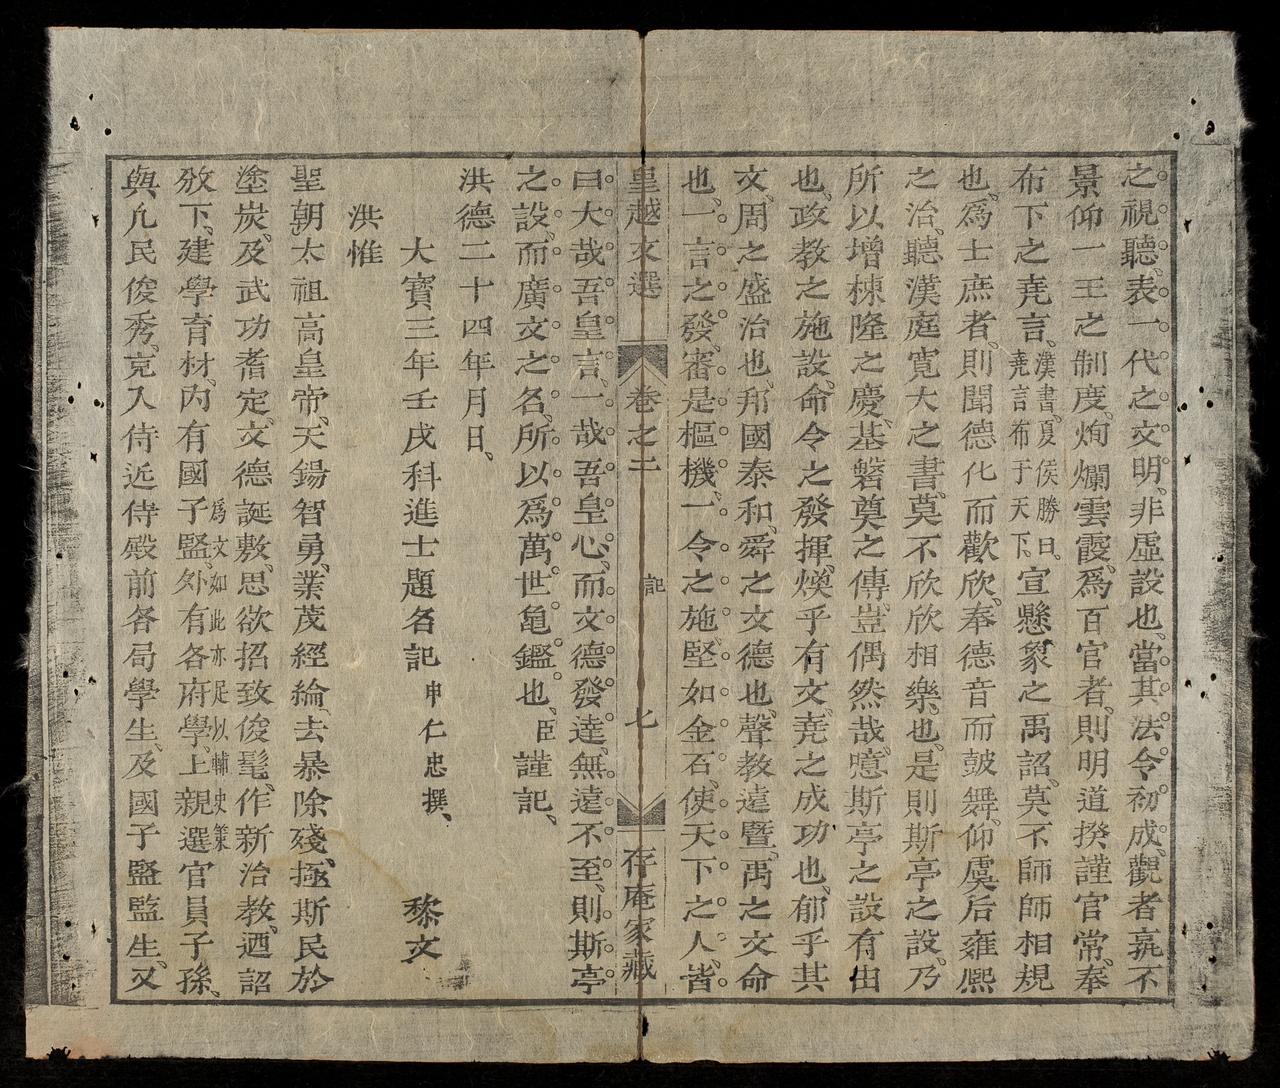 之視聽、表一代之文明、非虛設也、當其法令初成、觀者孰不
景仰一王之制度、炳爛雲霞、爲百官者、則明道揆、謹官常、奉
布下之堯言、漢書、夏侯勝曰、堯言布于天下、宣懸象之禹詔、莫不師師相規
也、爲士庶者、則聞德化而歡欣、奉德音而鼓舞、仰虞后雍熙
之治、聽漢庭寬大之書、莫不欣欣相樂也、是則斯亭之設、乃
所以增棟隆之慶、基磐奠之傳、豈偶然哉、噫、斯亭之設有由
也、政教之施設、命令之發揮、煥乎有文、堯之成功也、郁乎其
文、周之盛治也、邦國泰和、舜之文德也、聲教遠暨、禹之文命
也、一言之發、審是樞機、一令之施、堅如金石、使天下之人、皆
皇越文選 卷之二 記 七 存庵家藏
曰大哉吾皇言、一哉吾皇心、而文德發達、無遠不至、則斯亭
之設、而廣文之名、所以爲萬世龜鑑也、臣謹記、
洪德二十四年月日、
大寶三年壬戌科進士題名記 申仁忠撰、 黎文
洪惟
聖朝太祖高皇帝、天錫智勇、業茂經綸、去暴除殘、拯斯民於
塗炭、及武功耆定、文德誕敷、思欲招致俊髦、作新治教、迺詔
攽下、建學育材、內有國子監、外有各府學、爲文如此亦足以輔史策 上親選官員子孫、
與凡民俊秀、充入侍近侍殿前各局學生、及國子監監生、又